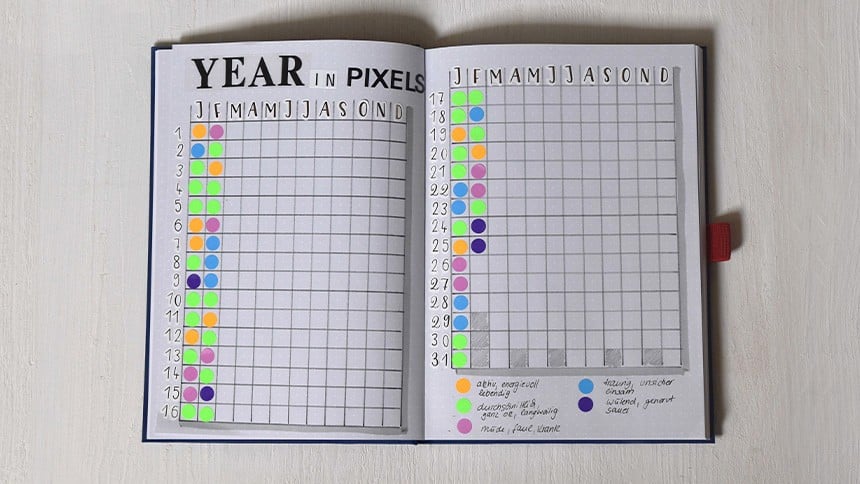 YEAR IN PIXELS
J F M A M J J A S O N D
1
2
3
4
5
6
7
8
9
10
11
12
13
14
15
16
J F M A M J J A S O N D
17
18
19
20
21
22
23
24
25
26
27
28
29
30
31
aktiv, energievoll
lebendig
durchschnittlich
ganz ok, langweilig
müde, faul, krank
traurig, unsicher
einsam
wütend, genervt
sauer